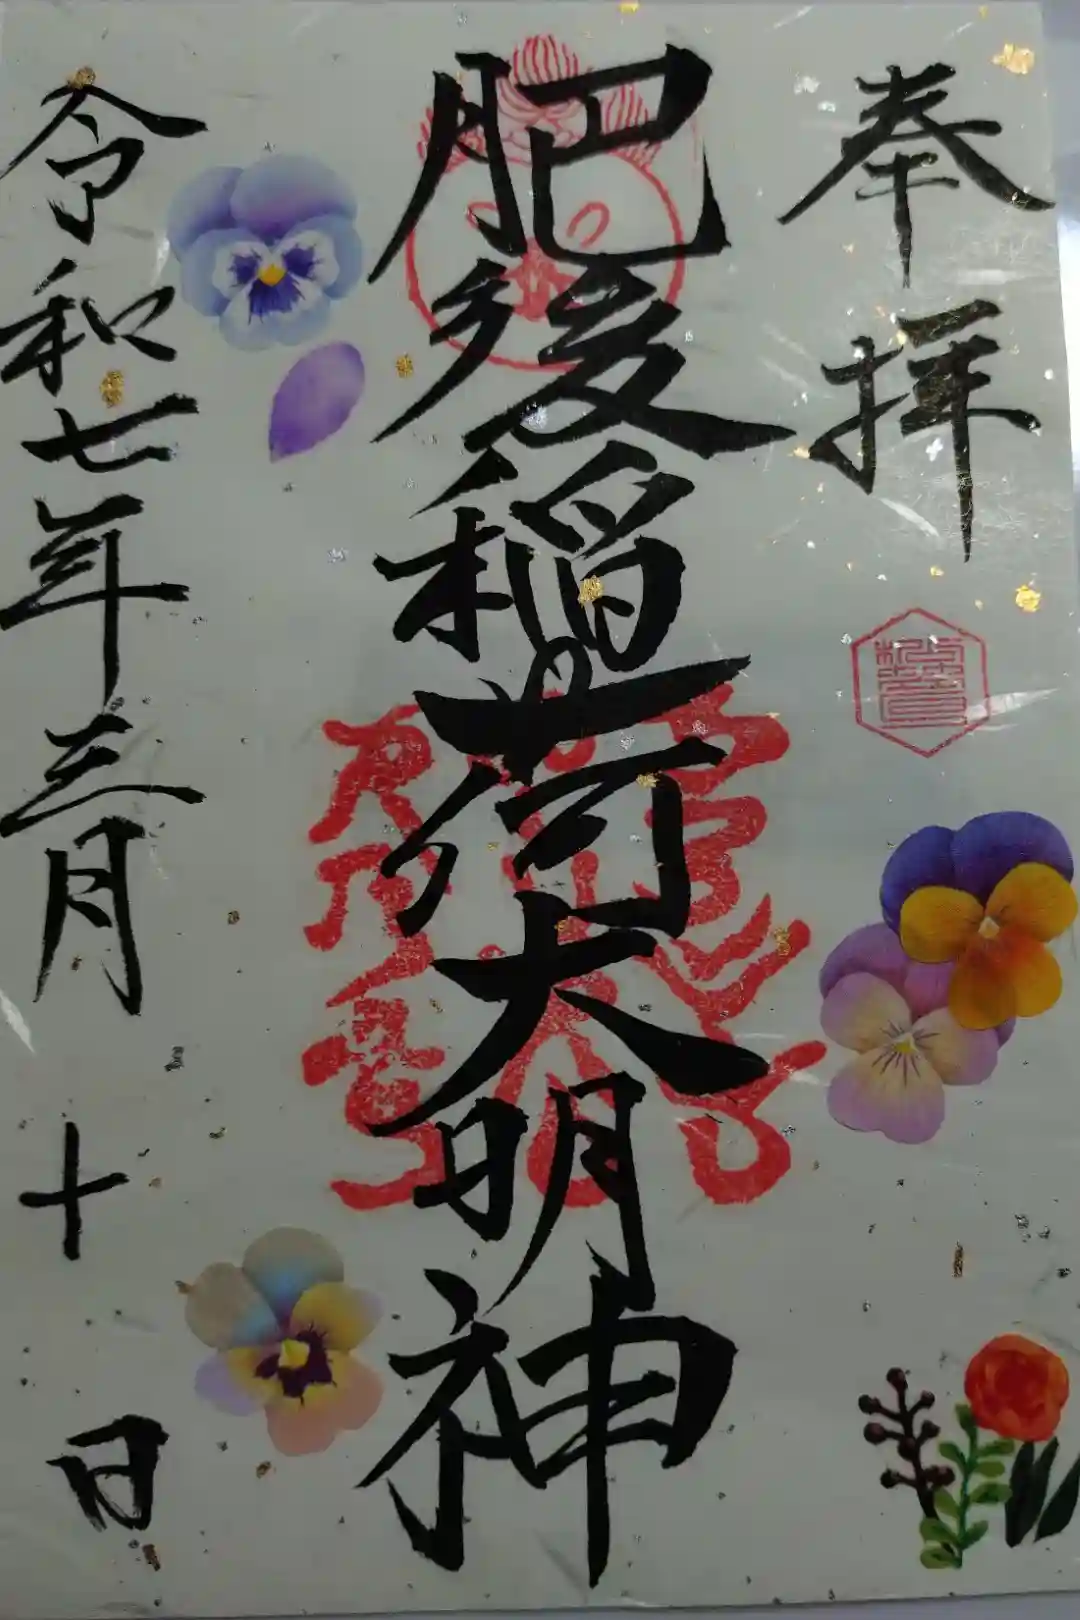 奉拝
肥後稲荷大明神
令和七年三月十日